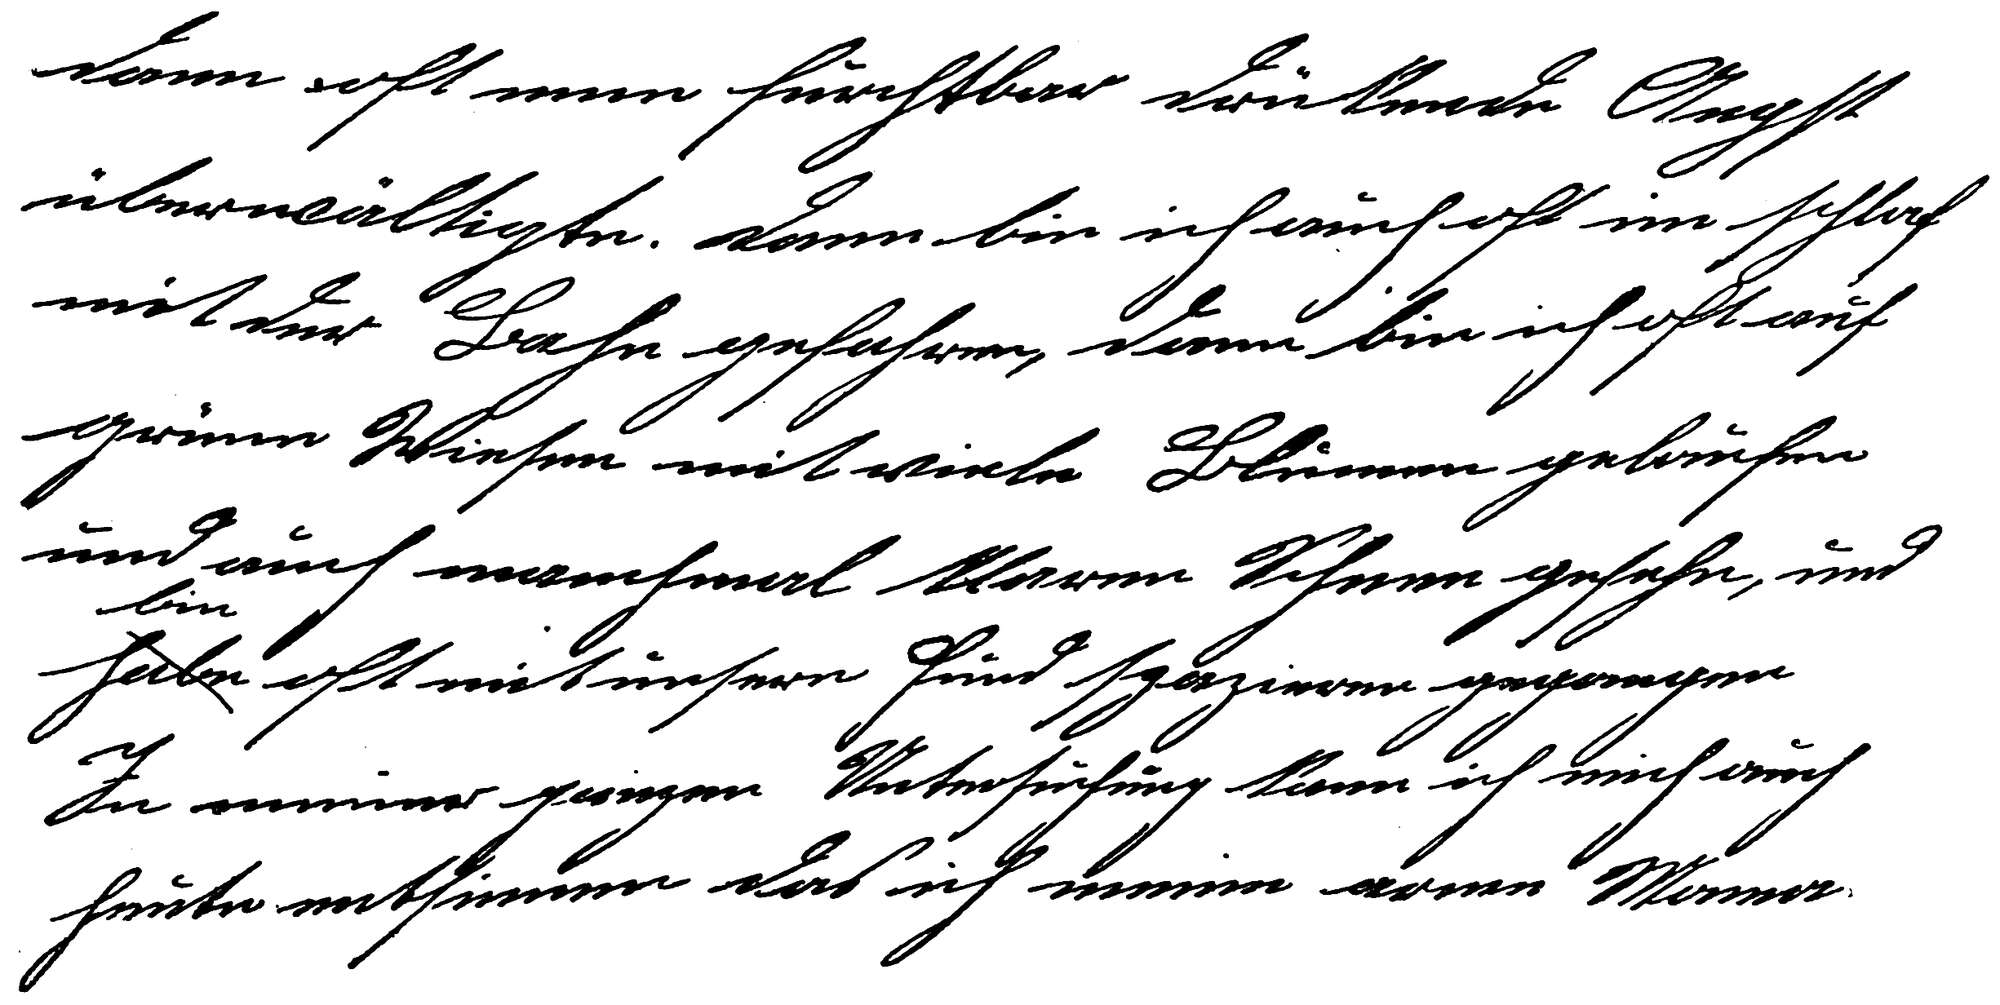 dann oft eine furchtbar drükende Angst
überwältigte. dann bin ich auch oft im schlaf
mit der Bahn gefahren, dann bin ich oft auf
grünen Wiesen mit viele Blumen gelaufen
und auch manchmal klaren Schnee gesehn, und
bin
habe oft mit unsern Hund spazieren gegangen
In meiner ganzen Untersuchung kann ich mich auch
heute entsinnen das ich meine arme Mama